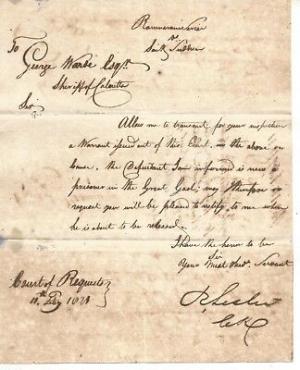 To
George Warde Esqr
Sheriff of Calcutta
Sir
Allow me to transmit for your inspection
a Warrant issued out of this Court, in the above
cause. the Defendant I am informed is now a
prisoner in the Great Gaol; may I therefore
request you will be pleased to notify to me when
he is about to be released.
I have the honor to be
Sir
Your Most Obedt. Servant
Court of Requests